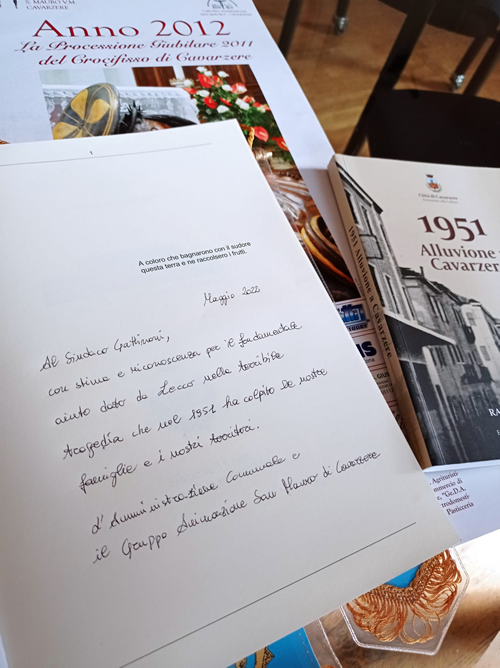 S. MAURO V.M.
CAVARZERE
Anno 2012
La Processione Giubilare 2011
del Crocifisso di Cavarzere
1
A coloro che bagnarono con il sudore
questa terra e ne raccolsero i frutti.
Maggio 2022
Al Sindaco Gattinoni,
con stima e riconoscenza per il fondamentale
aiuto dato da Lecco nella terribile
tragedia che nel 1951 ha colpito le nostre
famiglie e i nostri territori.
L'Amministrazione Comunale e
il Gruppo Animazione San Mauro di Cavarzere
Città di Cavarzere
1951
Alluvione
Cavarzer
1951 Alluvione a Cavarzere
RA
Agriturist
ommercio di
e, "Ge.D.A.
trodomest
Pasticceria